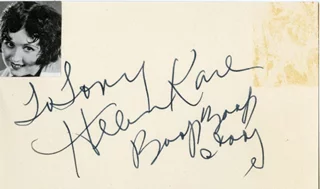 To Tony
Helen Kane
Boop Boop
a Doop